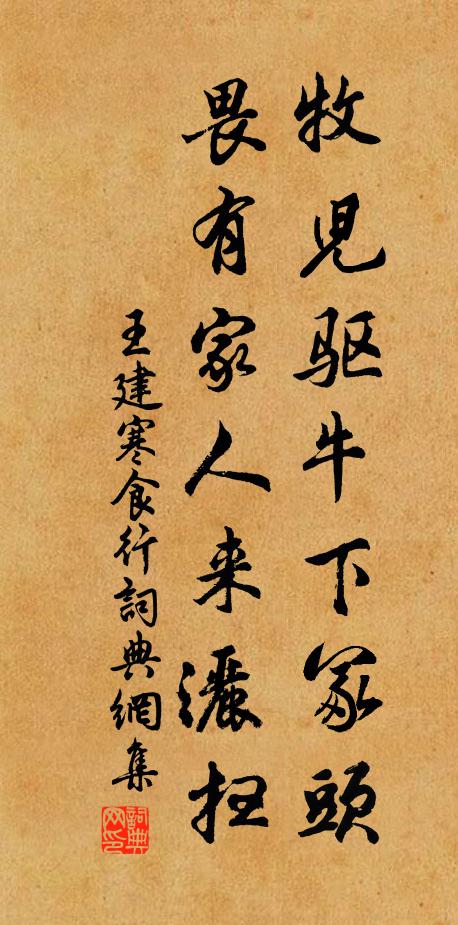 牧児驱牛下冢頭
畏有家人来灑扫
王建寒食行詞典網集
詞典网印